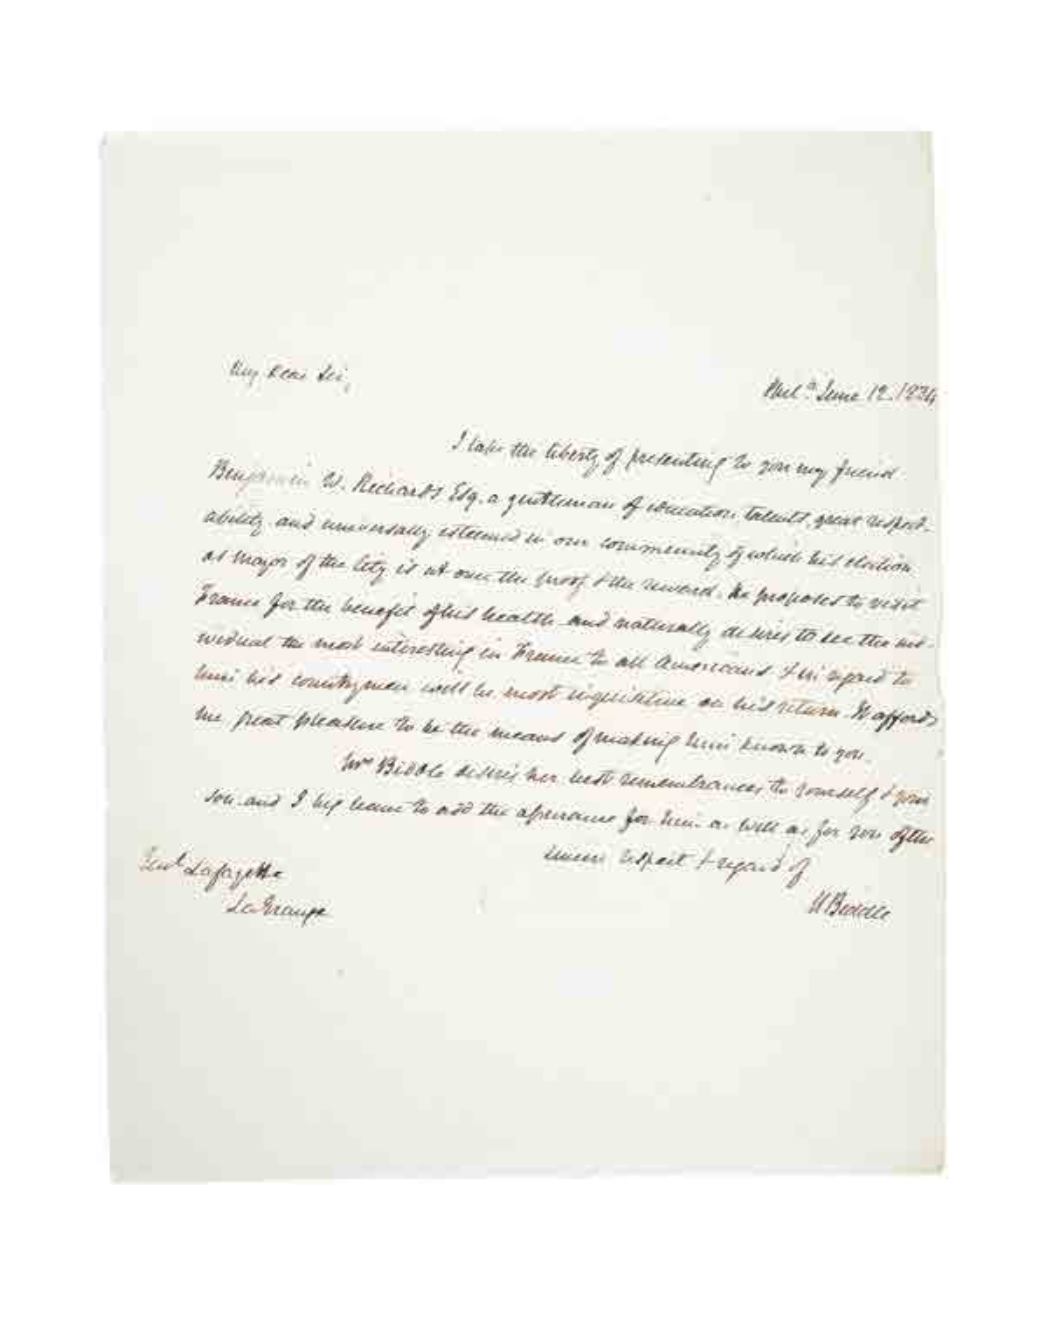 My Dear Sir,
Phila June 12. 1834
I take the liberty of presenting to you my friend
Benjamin W. Richards Esq. a gentleman of education, talents, great respect-
ability, and universally esteemed in our community of which his election
as Mayor of the City is at once the proof & the reward. He proposes to visit
France for the benefit of his health and naturally desires to see the indi-
vidual the most interesting in France to all Americans & in regard to
whom his countrymen will be most inquisitive on his return. It affords
me great pleasure to be the means of making him known to you.
Mrs Biddle desires her best remembrances to yourself & your
son and I beg leave to add the assurance for him as well as for you of the
sincere respect & regard of
N Biddle
Genl Lafayette
La Grange